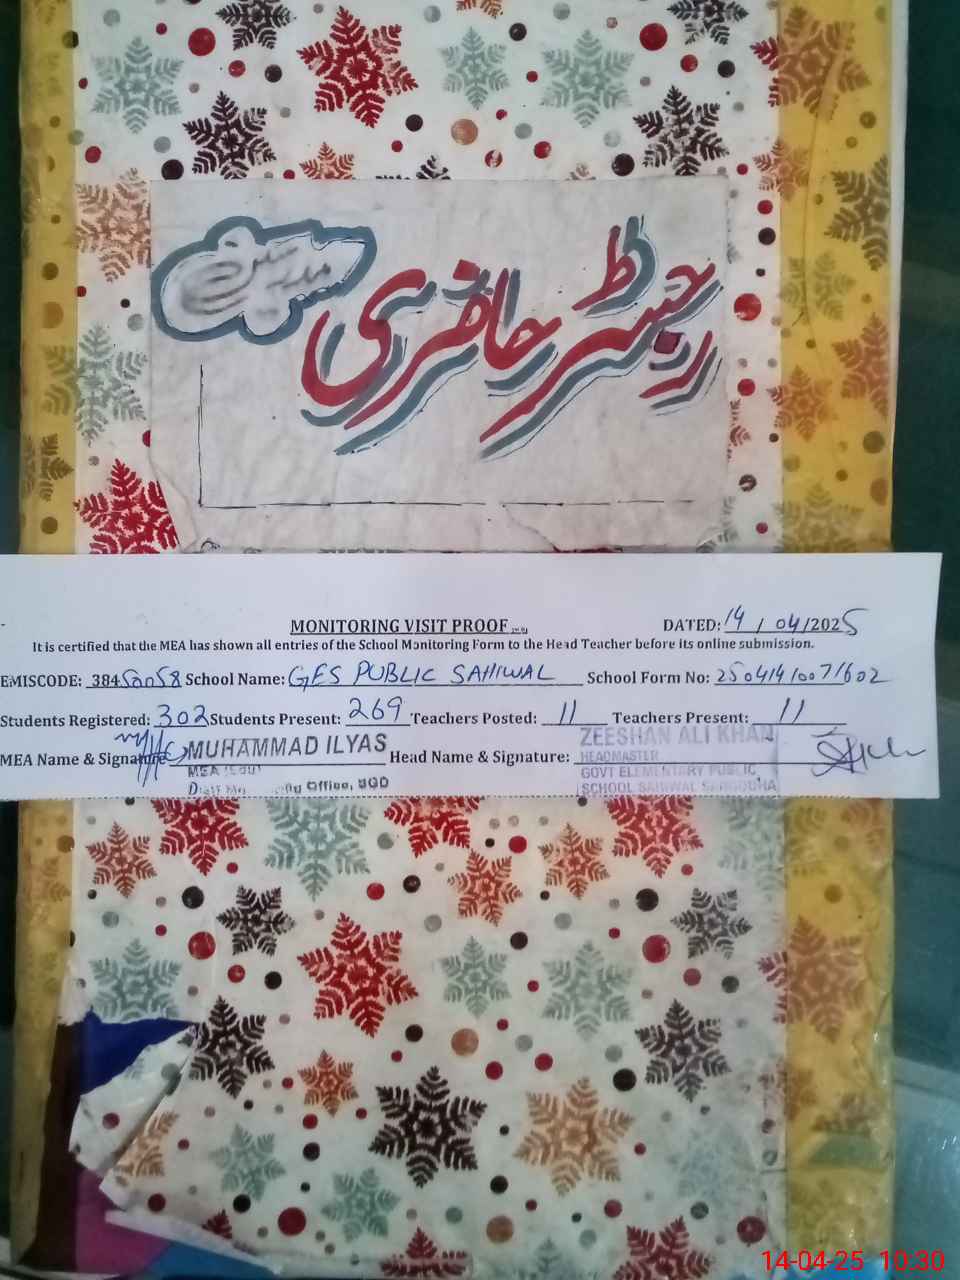 رجسٹر حاضری
مدرسین
MONITORING VISIT PROOF
DATED: 14 / 04 /2025
It is certified that the MEA has shown all entries of the School Monitoring Form to the Head Teacher before its online submission.
EMISCODE: 38450058 School Name: GES PUBLIC SAHIWAL School Form No: 25041410071602
Students Registered: 302 Students Present: 269 Teachers Posted: 11 Teachers Present: 11
MEA Name & Signature MUHAMMAD ILYAS Head Name & Signature: ZEESHAN ALI KHAN
MEA (Edu) HEADMASTER
Office, SGD GOVT ELEMENTARY PUBLIC,
SCHOOL SAHIWAL SARGODHA
14-04-25 10:30